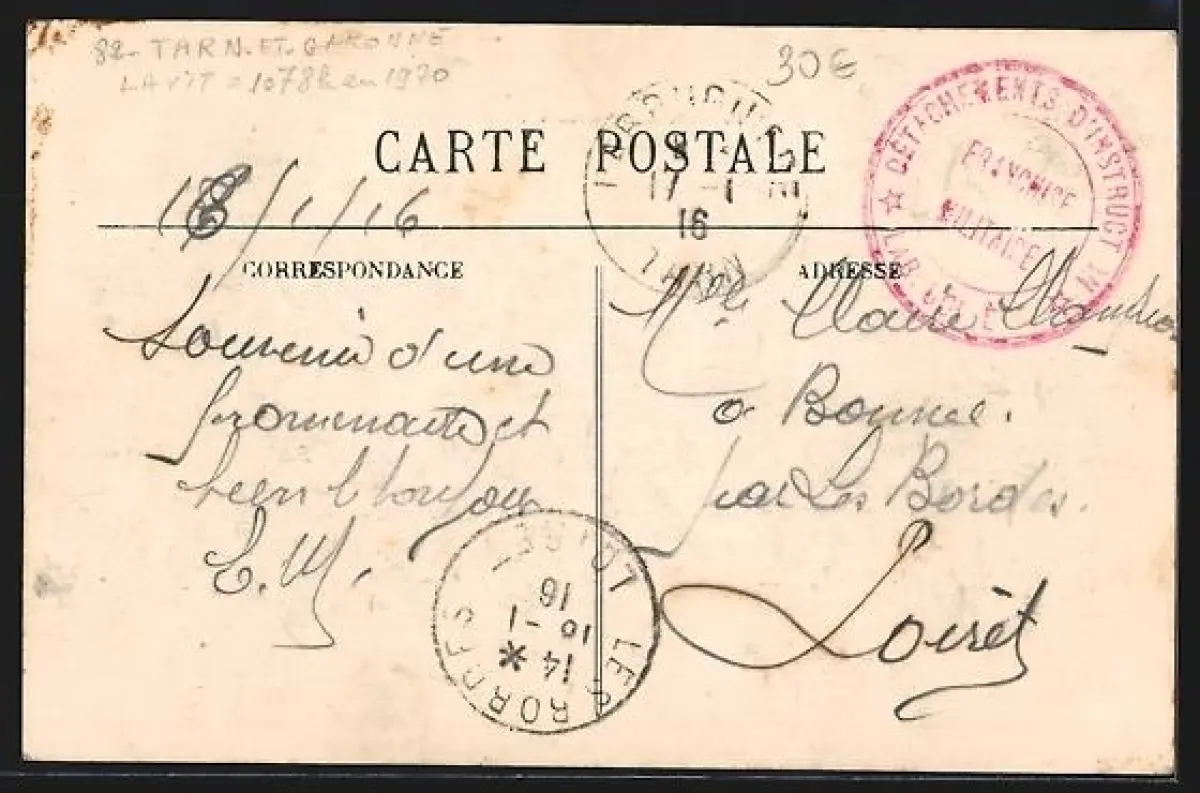 82- TARN-ET-GARONNE
LAVIT = 1078h en 1970
30€
CARTE POSTALE
DÉTACHEMENTS D'INSTRUCT
FRANCHISE
MILITAIRE
17-1
16
/1/16
CORRESPONDANCE
ADRESSE
Souvenir d'une
promenade et
bien l bonjour
E. M.
Mlle Claire
a Bonnee.
par Les Bordes.
Loiret
LES BORDES LOIRET
14 *
-1
16